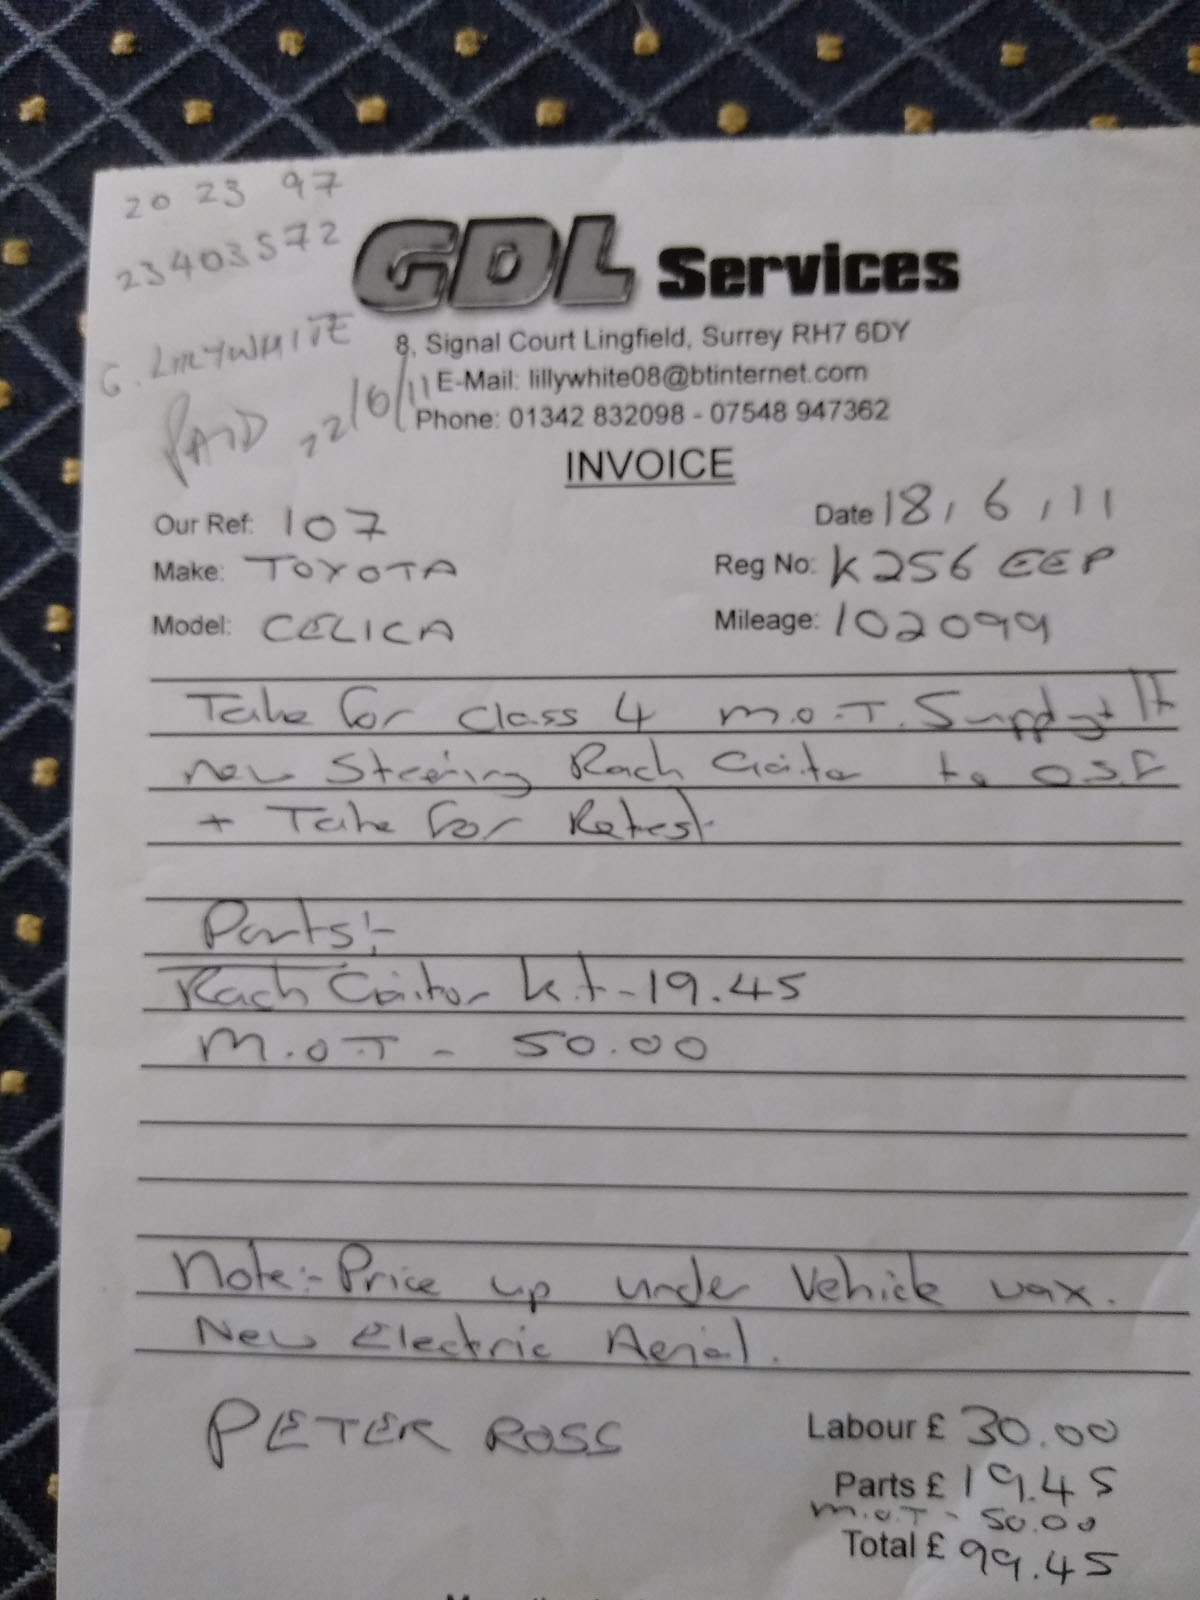 20 23 97
23403572
G. LILLYWHITE
PAID 22/6/11
GDL Services
8, Signal Court Lingfield, Surrey RH7 6DY
E-Mail: lillywhite08@btinternet.com
Phone: 01342 832098 - 07548 947362
INVOICE
Our Ref: 107
Date 18/6/11
Make: TOYOTA
Reg No: K256 EEP
Model: CELICA
Mileage: 102099
Take for Class 4 M.O.T. Supply + fit
new Steering Rack Gaitor to OSF
+ Take for Retest
Parts:-
Rack Gaitor kit - 19.45
M.O.T - 50.00
Note:- Price up under Vehicle wax.
New Electric Aerial.
PETER ROSS
Labour £ 30.00
Parts £ 19.45
M.O.T - 50.00
Total £ 99.45